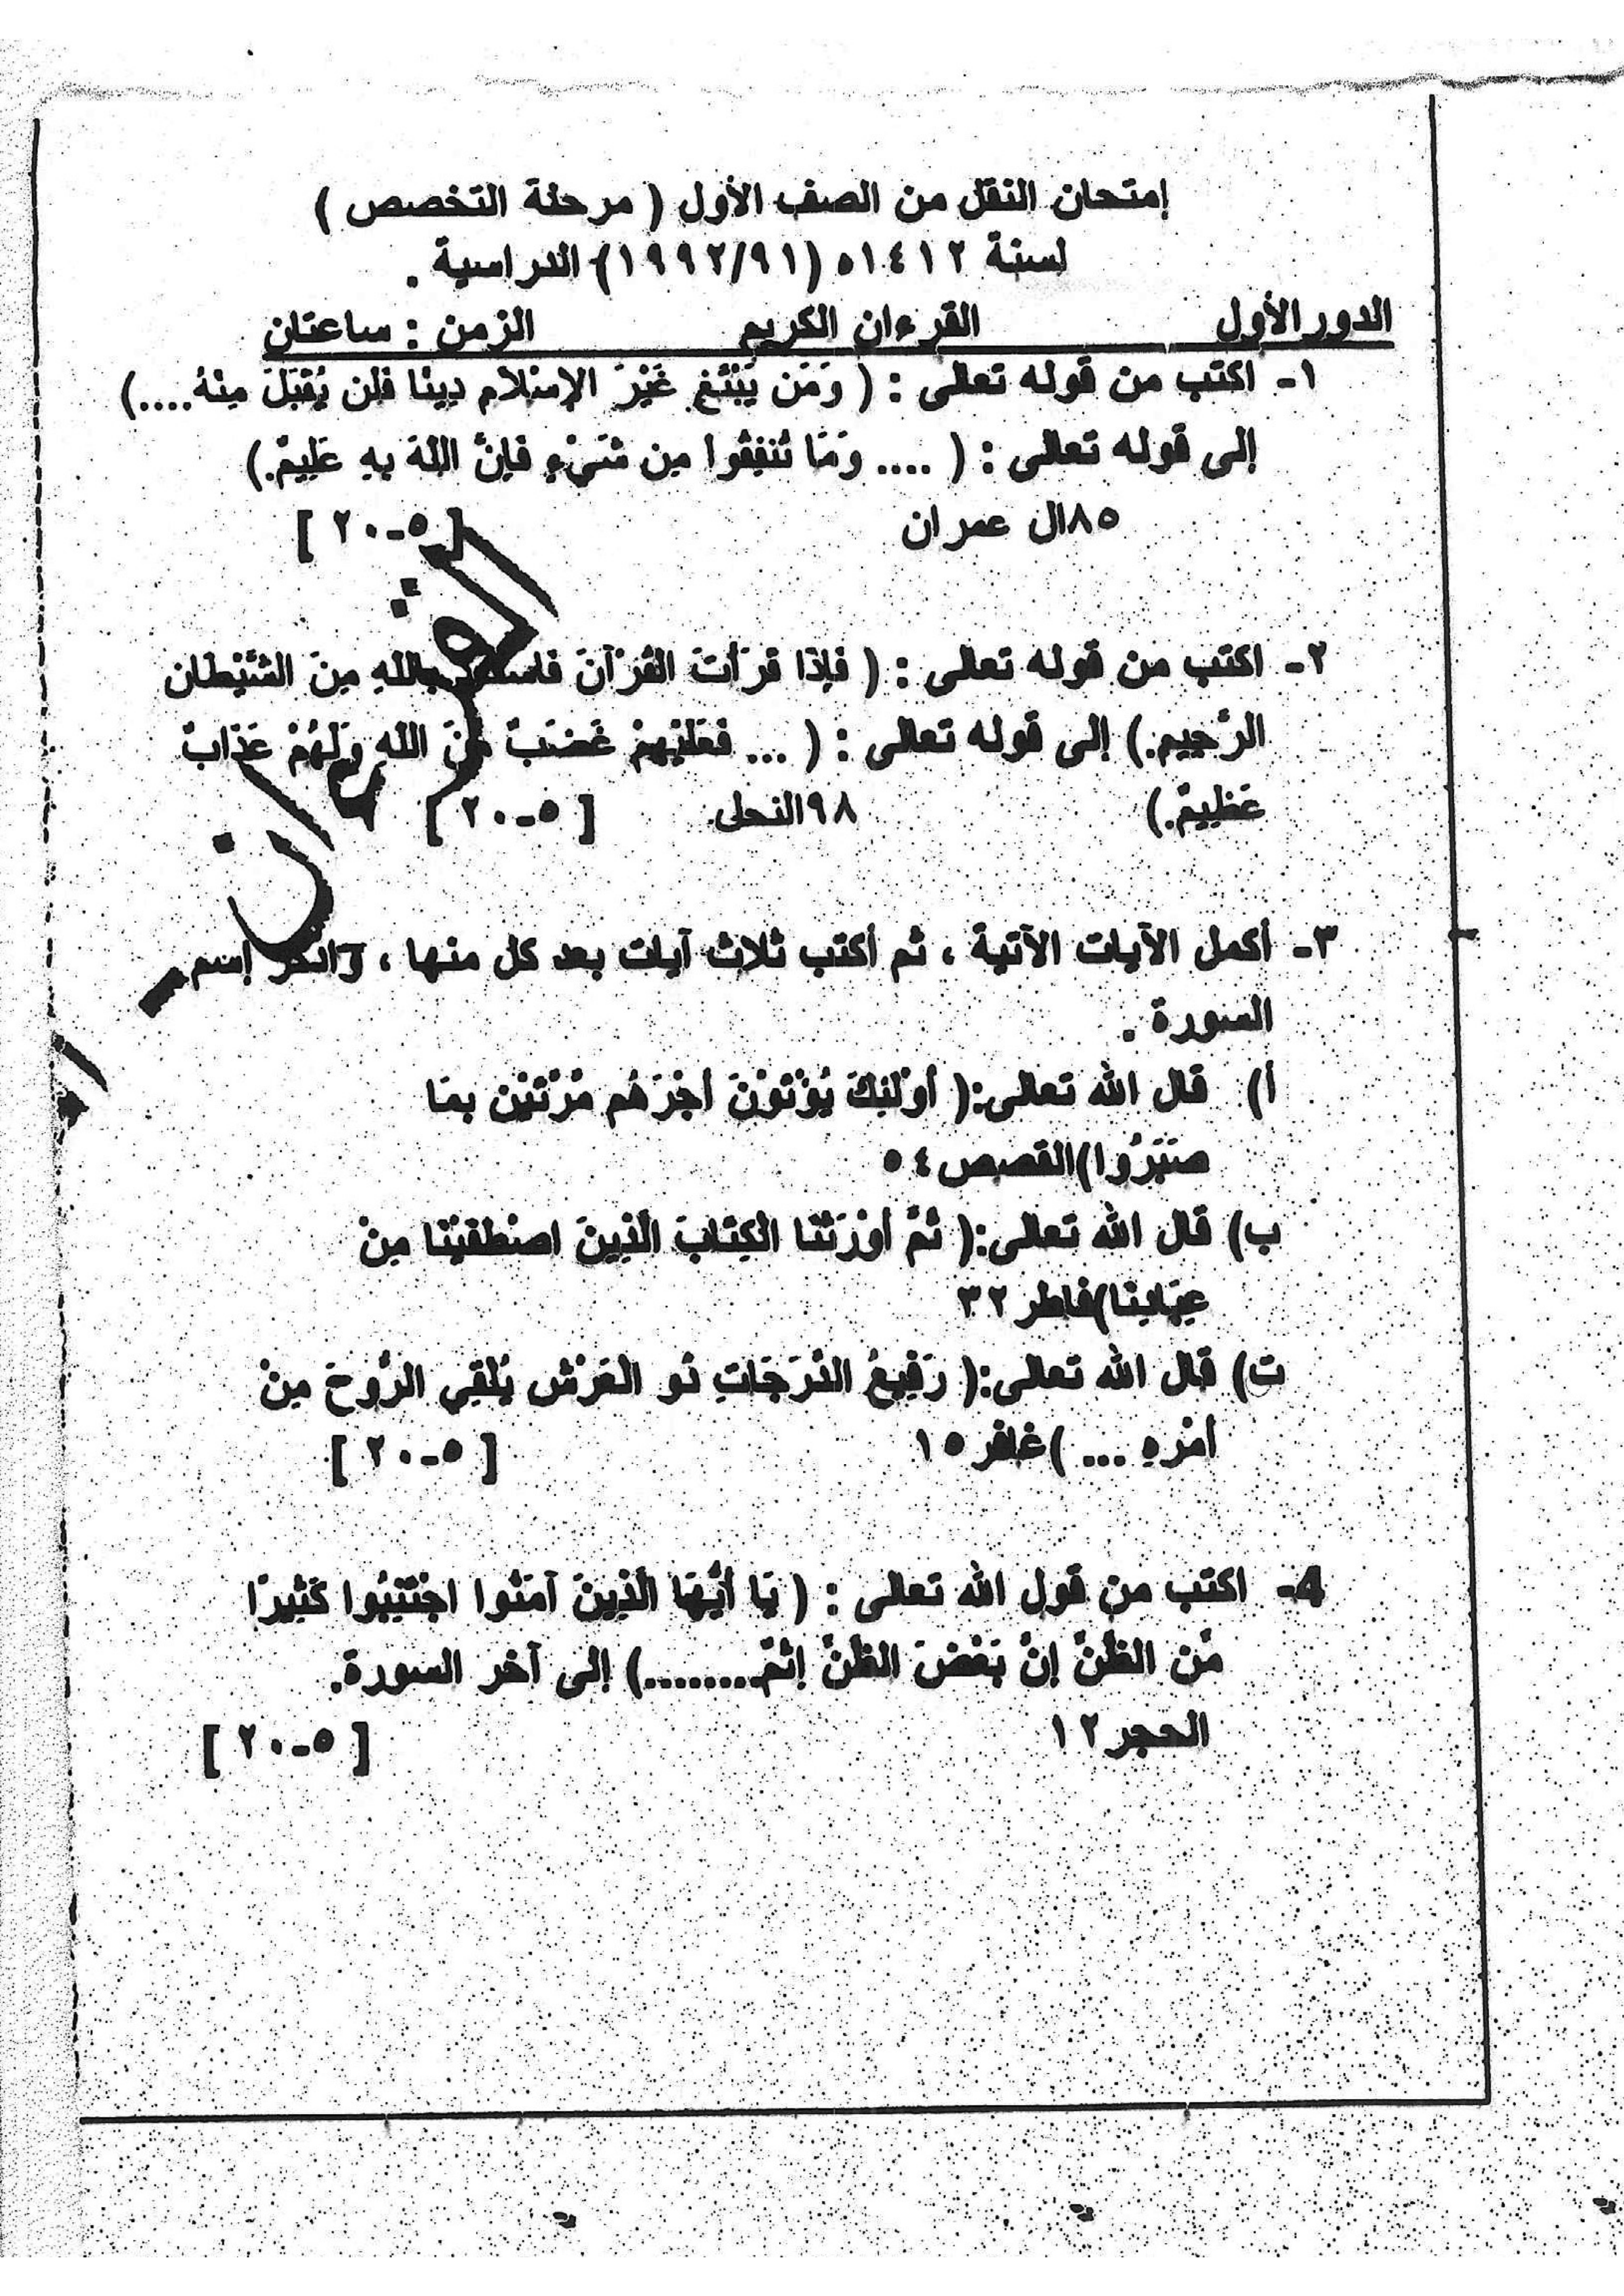 إمتحان النقل من الصف الأول ( مرحلة التخصص )
لسنة ١٤١٢ه (١٩٩٢/٩١) الدراسية .
الدور الأول القرءان الكريم الزمن : ساعتان
١- اكتب من قوله تعالى : ( وَمَن يَبْتَغِ غَيْرَ الإِسْلامِ دِينًا فَلَن يُقْبَلَ مِنْهُ....)
إلى قوله تعالى : ( .... وَمَا تُنفِقُوا مِن شَيْءٍ فَإِنَّ اللَّهَ بِهِ عَلِيمٌ.)
٨٥ال عمران [ ٥-٢٠ ]
٢- اكتب من قوله تعالى : ( فَإِذَا قَرَأْتَ الْقُرْآنَ بِاللَّهِ مِنَ الشَّيْطَانِ
الرَّجِيمِ.) إلى قوله تعالى : ( ... فَعَلَيْهِمْ غَضَبٌ مِّنَ اللَّهِ وَلَهُمْ عَذَابٌ
عَظِيمٌ.) ٩٨النحل [ ٥-٢٠ ]
القرءان
٣- أكمل الآيات الآتية ، ثم أكتب ثلاث آيات بعد كل منها ، إسم
السورة .
أ) قال الله تعالى:( أُوْلَئِكَ يُؤْتَوْنَ أَجْرَهُم مَّرَّتَيْنِ بِمَا
صَبَرُوا)القصص٥٤
ب) قال الله تعالى:( ثُمَّ أَوْرَثْنَا الْكِتَابَ الَّذِينَ اصْطَفَيْنَا مِنْ
عِبَادِنَا)فاطر٣٢
ت) قال الله تعالى:( رَفِيعُ الدَّرَجَاتِ ذُو الْعَرْشِ يُلْقِي الرُّوحَ مِنْ
أَمْرِهِ ... )غافر١٥ [ ٥-٢٠ ]
4- اكتب من قول الله تعالى : ( يَا أَيُّهَا الَّذِينَ آمَنُوا اجْتَنِبُوا كَثِيرًا
مِّنَ الظَّنِّ إِنَّ بَعْضَ الظَّنِّ إِثْمٌ........) إلى آخر السورة.
الحجر١٢ [ ٥-٢٠ ]